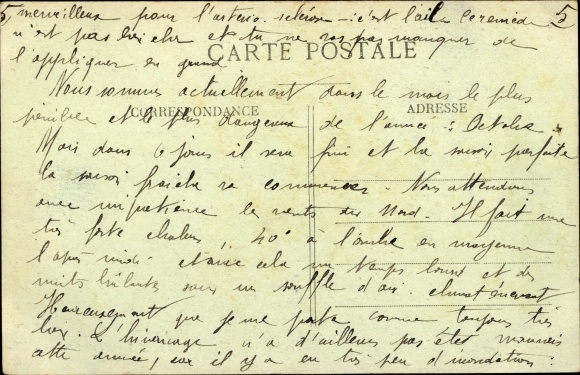 5 merveilleux pour l'artério-sclérose - c'est l'ail. Ce remède 5
n'est pas bien cher et tu ne vas pas manquer de
CARTE POSTALE
l'appliquer en grand
Nous sommes actuellement dans le mois le plus
CORRESPONDANCE
ADRESSE
pénible et le plus dangereux de l'année : Octobre.
Mais dans 6 jours il sera fini et la saison parfaite
la saison fraîche va commencer. Nous attendons
avec impatience les vents du Nord. Il fait une
très forte chaleur, 40° à l'ombre en moyenne
l'après-midi. et avec cela un temps lourd et des
nuits brûlantes sans un souffle d'air. climat énervant
Heureusement que je me porte comme toujours très
bien. L'hivernage n'a d'ailleurs pas été mauvais
cette année, car il y a eu très peu d'inondations.